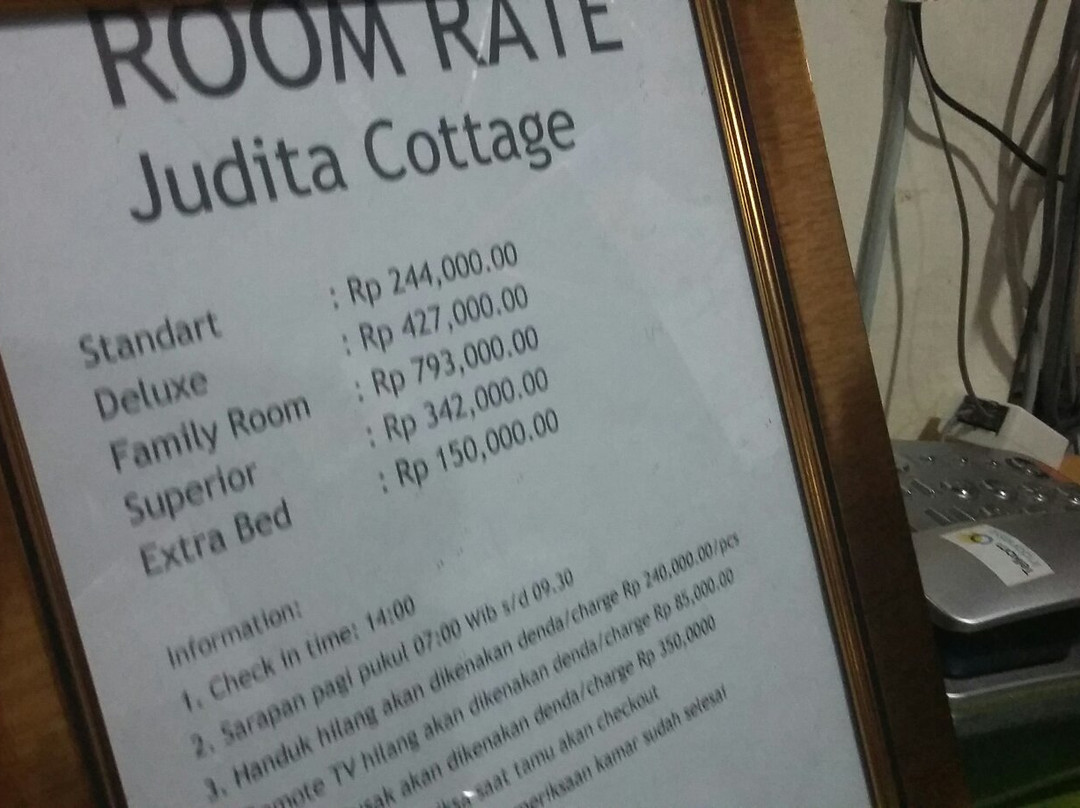 ROOM RATE
Judita Cottage
Standart : Rp 244,000.00
Deluxe : Rp 427,000.00
Family Room : Rp 793,000.00
Superior : Rp 342,000.00
Extra Bed : Rp 150,000.00
Information:
1. Check in time: 14:00
2. Sarapan pagi pukul 07:00 Wib s/d 09.30
3. Handuk hilang akan dikenakan denda/charge Rp 240,000.00/pcs
emote TV hilang akan dikenakan denda/charge Rp 85,000.00
sak akan dikenakan denda/charge Rp 350,0000
ksa saat tamu akan checkout
meriksaan kamar sudah selesai